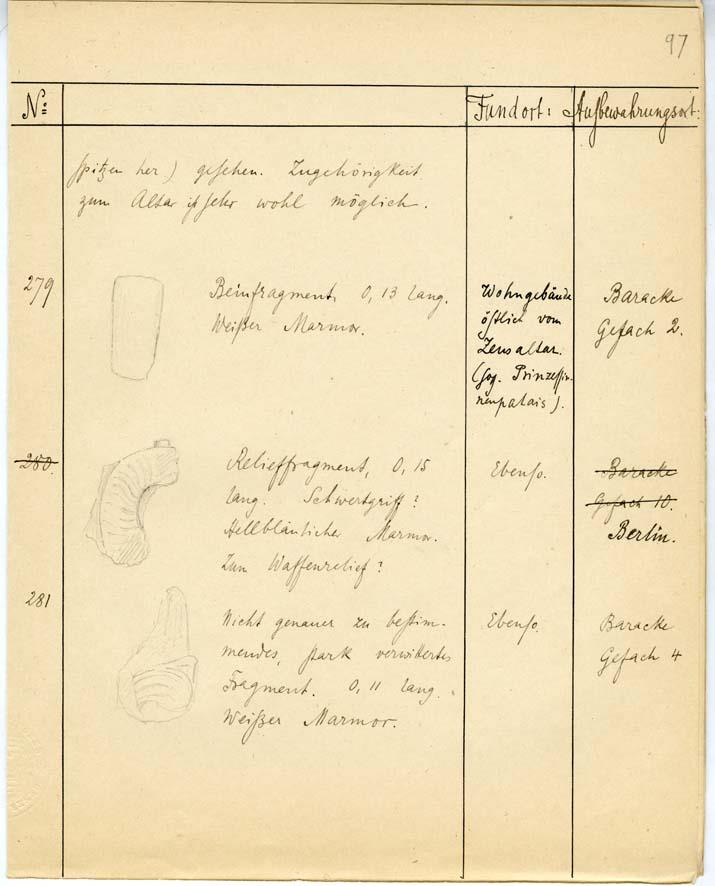 97
No: Fundort: Aufbewahrungsort:
spitzen her) gesehen. Zugehörigkeit
zum Altar ist sehr wohl möglich.
279
Beinfragment, 0,13 lang.
Weißer Marmor.
Wohngebäude
östlich vom
Zeusaltar.
(sog. Prinzessin-
nenpalais).
Baracke
Gefach 2.
280.
Relieffragment, 0,15
lang. Schwertgriff?
Hellbläulicher Marmor.
Zum Waffenrelief?
Ebenso.
Baracke
Gefach 10.
Berlin.
281
Nicht genauer zu bestim-
mendes, stark verwittertes
Fragment. 0,11 lang.
Weißer Marmor.
Ebenso.
Baracke
Gefach 4